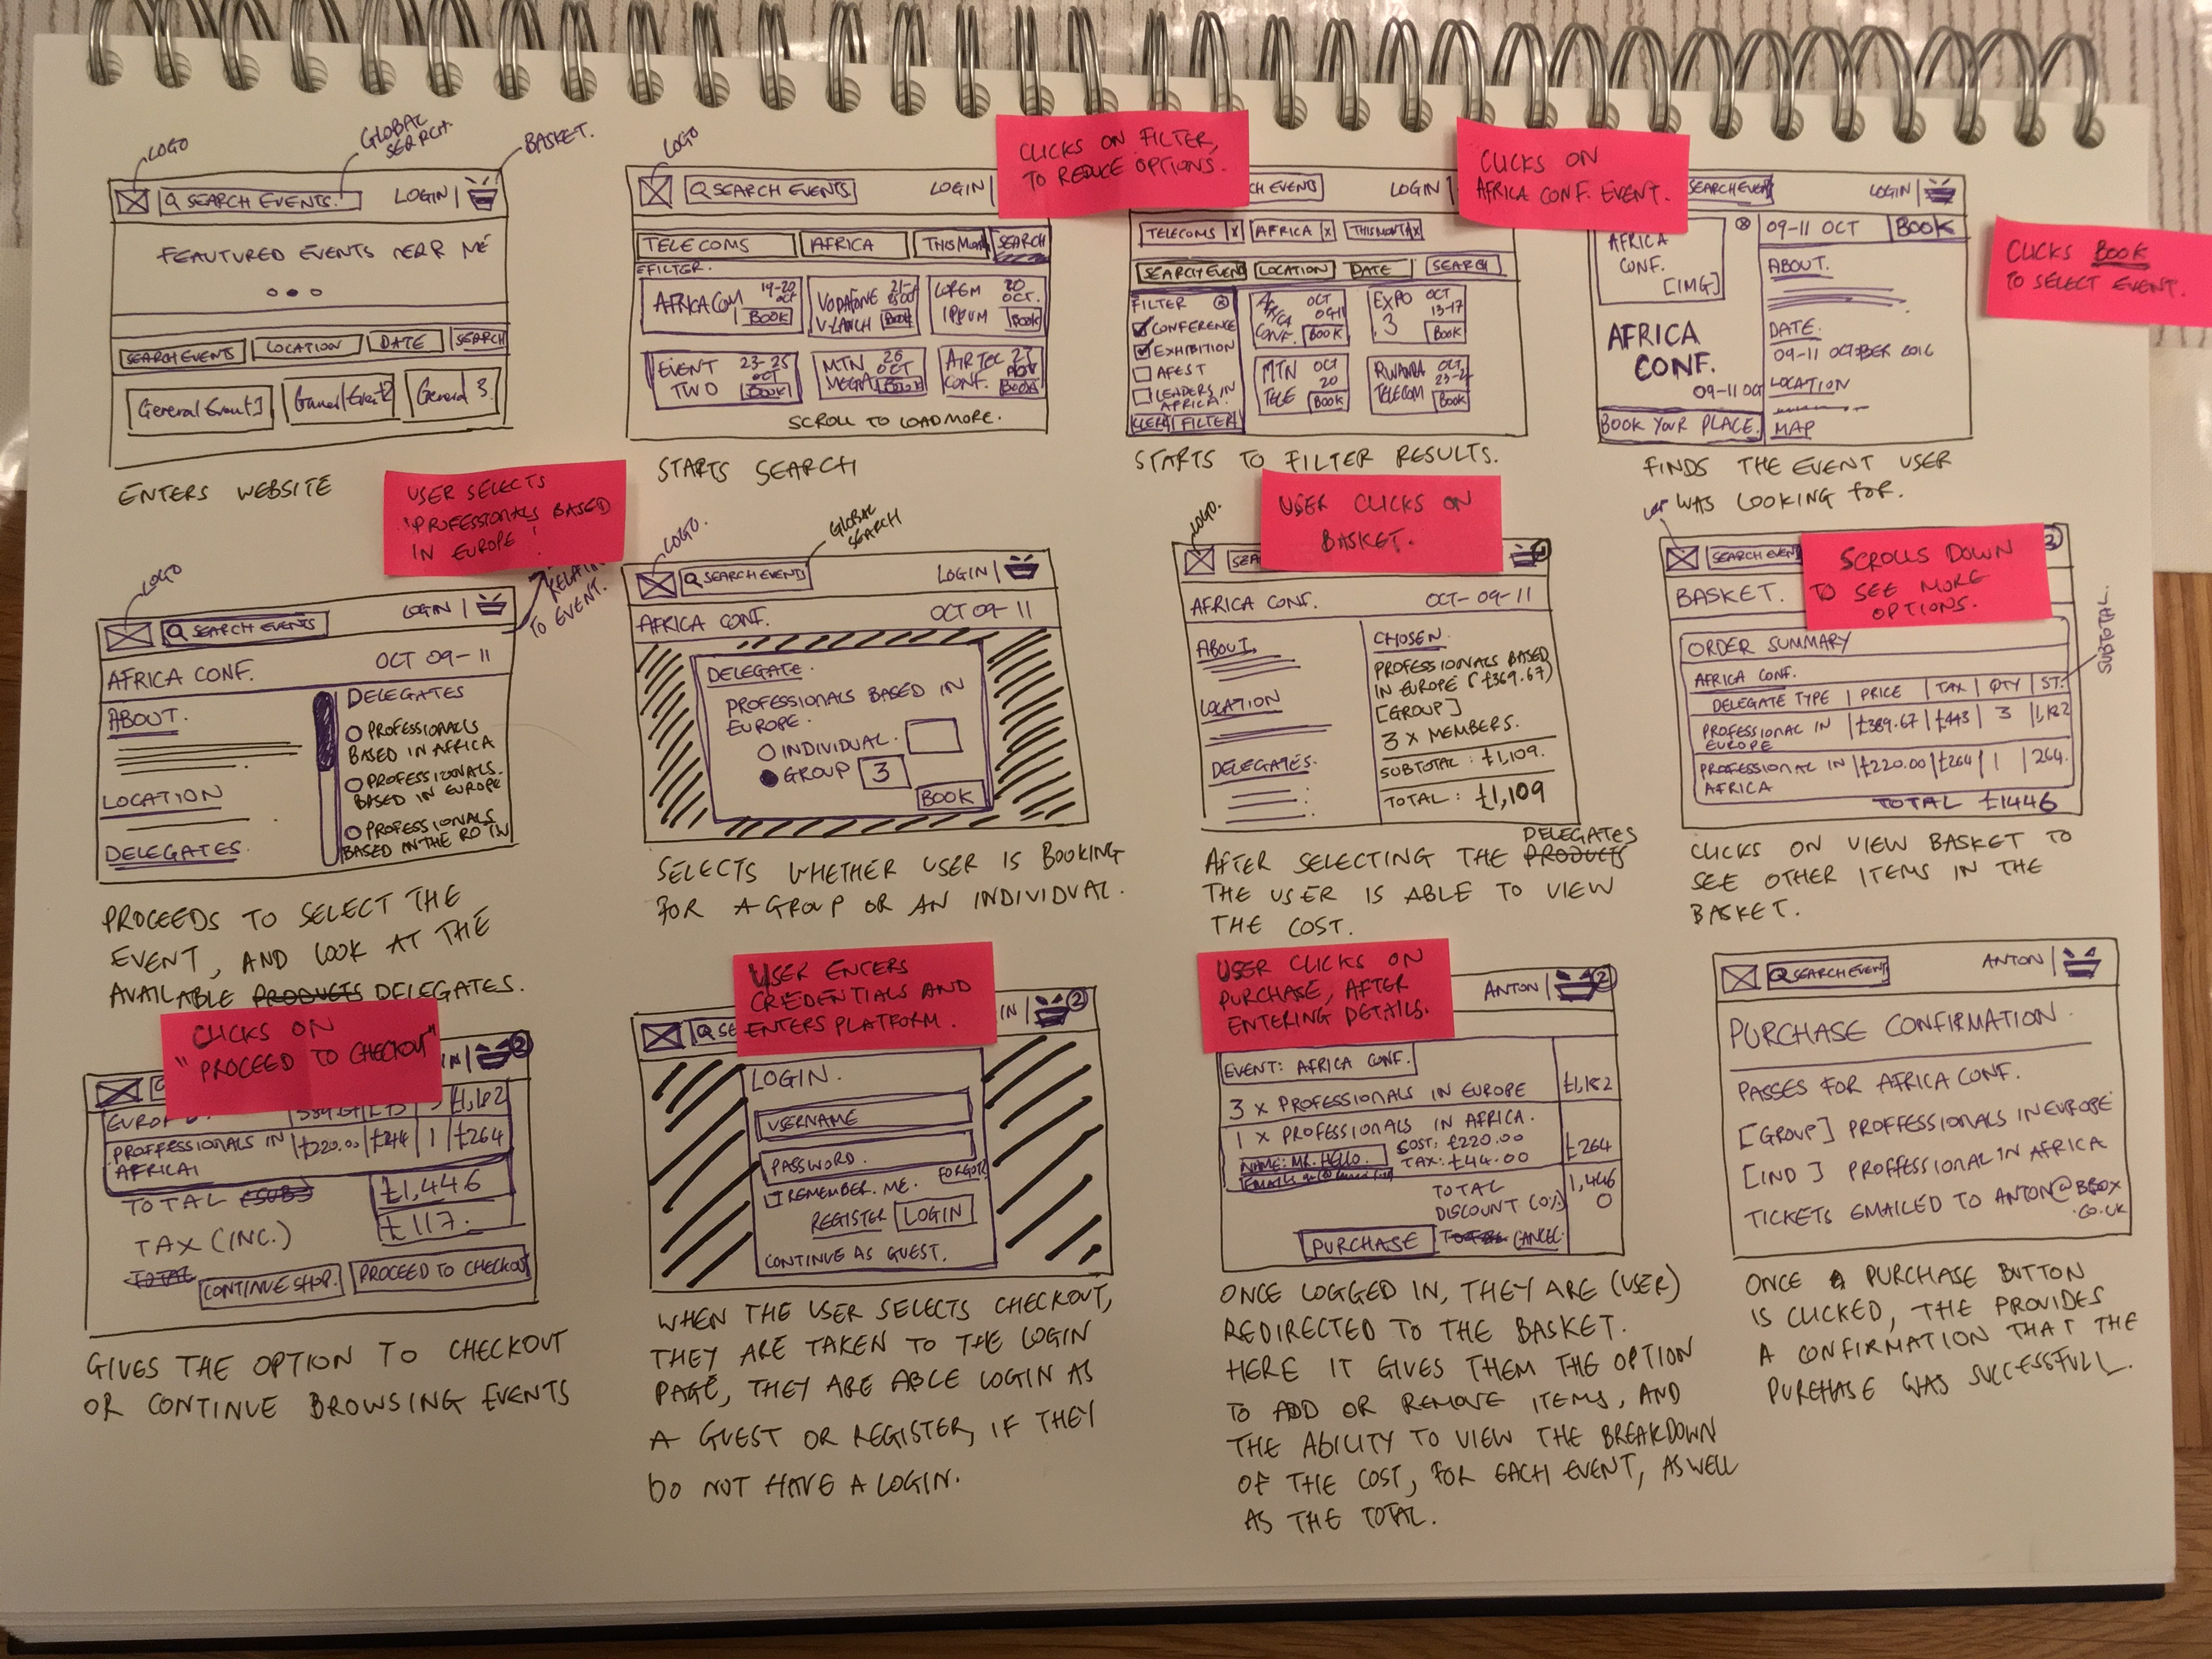 LOGO
GLOBAL
SEARCH.
BASKET.
SEARCH EVENTS.
LOGIN |
FEAUTURED EVENTS NEAR ME
SEARCH EVENTS
LOCATION
DATE
SEARCH
General Event 1
General Event 2
General 3.
ENTERS WEBSITE
LOGO
SEARCH EVENTS
LOGIN |
TELECOMS
AFRICA
THIS MONTH
SEARCH
FILTER.
AFRICA COM
19-20
OCT
BOOK
VODAFONE
V-LAUNCH
BOOK
LOREM
IPSUM
20
OCT.
BOOK
EVENT
TWO
23-25
OCT
BOOK
MTN
MEGA
26
OCT
BOOK
AIRTEC
CONF.
BOOK
SCROLL TO LOAD MORE.
STARTS SEARCH
CLICKS ON FILTER,
TO REDUCE OPTIONS.
CH EVENTS
LOGIN
TELECOMS | X
AFRICA | X
THIS MONTH X
SEARCH EVENT
LOCATION
DATE
SEARCH
FILTER
CONFERENCE
EXHIBITION
AFEST
LEADERS IN
AFRICA.
CLEAR
FILTER
AFRICA
CONF.
OCT
09-11
BOOK
EXPO
3
OCT
13-17
BOOK
MTN
TELE
OCT
20
BOOK
RWANDA
TELECOM
OCT
BOOK
STARTS TO FILTER RESULTS.
CLICKS ON
AFRICA CONF. EVENT.
SEARCH EVEN
LOGIN |
AFRICA
CONF.
[IMG]
AFRICA
CONF.
09-11 OCT
BOOK YOUR PLACE.
09-11 OCT
BOOK
ABOUT.
DATE.
09-11 OCTOBER 2016
LOCATION
MAP
FINDS THE EVENT USER
WAS LOOKING FOR.
CLICKS BOOK
TO SELECT EVENT.
USER SELECTS
"PROFESSIONALS BASED
IN EUROPE"
TO EVENT.
LOGO
SEARCH EVENTS
LOGIN |
AFRICA CONF.
OCT 09-11
ABOUT.
LOCATION
DELEGATES.
DELEGATES
PROFESSIONALS
BASED IN AFRICA
PROFESSIONALS.
BASED IN EUROPE
PROFESSIONALS
BASED IN THE RO IN
PROCEEDS TO SELECT THE
EVENT, AND LOOK AT THE
AVAILABLE PRODUCTS DELEGATES.
LOGO.
GLOBAL
SEARCH
SEARCH EVENTS
LOGIN |
AFRICA CONF.
OCT 09-11
DELEGATE.
PROFESSIONALS BASED IN
EUROPE.
INDIVIDUAL.
GROUP
3
BOOK
SELECTS WHETHER USER IS BOOKING
FOR A GROUP OR AN INDIVIDUAL.
LOGO.
USER CLICKS ON
BASKET.
SEA
AFRICA CONF.
OCT-09-11
ABOUT.
LOCATION
DELEGATES.
CHOSEN.
PROFESSIONALS BASED
IN EUROPE (£369.67)
[GROUP]
3 X MEMBERS.
SUBTOTAL: £1,109.
TOTAL: £1,109
DELEGATES
AFTER SELECTING THE PRODUCTS
THE USER IS ABLE TO VIEW
THE COST.
SEARCH EVEN
SCROLLS DOWN
TO SEE MORE
OPTIONS.
BASKET.
SUBTOTAL.
ORDER SUMMARY
AFRICA CONF.
DELEGATE TYPE | PRICE | TAX | QTY | ST.
PROFESSIONAL IN
EUROPE
£389.67
£443
3
1,182
PROFESSIONAL IN
AFRICA
£220.00
£264
1
264.
TOTAL £1446
CLICKS ON VIEW BASKET TO
SEE OTHER ITEMS IN THE
BASKET.
CLICKS ON
"PROCEED TO CHECKOUT"
IN |
2
£1,182
PROFFESSIONALS IN
AFRICA
£220.00
1
£264
TOTAL (SUB)
£1,446
£117.
TAX (INC.)
TOTAL
CONTINUE SHOP.
PROCEED TO CHECKOUT
GIVES THE OPTION TO CHECKOUT
OR CONTINUE BROWSING EVENTS
USER ENTERS
CREDENTIALS AND
ENTERS PLATFORM.
SE
IN |
2
LOGIN.
USERNAME
PASSWORD.
FORGOT?
REMEMBER. ME.
REGISTER
LOGIN
CONTINUE AS GUEST.
WHEN THE USER SELECTS CHECKOUT,
THEY ARE TAKEN TO THE LOGIN
PAGE, THEY ARE ABLE LOGIN AS
A GUEST OR REGISTER, IF THEY
DO NOT HAVE A LOGIN.
USER CLICKS ON
PURCHASE, AFTER
ENTERING DETAILS.
ANTON |
2
EVENT: AFRICA CONF.
3 X PROFESSIONALS IN EUROPE
£1,182
1 X PROFESSIONALS IN AFRICA.
NAME: MR. HELLO.
COST: £220.00
TAX: £44.00
£264
TOTAL
1,446
DISCOUNT (0%)
0
PURCHASE
CANCEL.
ONCE LOGGED IN, THEY ARE (USER)
REDIRECTED TO THE BASKET.
HERE IT GIVES THEM THE OPTION
TO ADD OR REMOVE ITEMS, AND
THE ABILITY TO VIEW THE BREAKDOWN
OF THE COST, FOR EACH EVENT, AS WELL
AS THE TOTAL.
SEARCH EVENT
ANTON |
PURCHASE CONFIRMATION.
PASSES FOR AFRICA CONF.
[GROUP] PROFFESSIONALS IN EUROPE
[IND] PROFFESSIONAL IN AFRICA
TICKETS EMAILED TO ANTON@BBOX
.CO.UK
ONCE A PURCHASE BUTTON
IS CLICKED, THE PROVIDES
A CONFIRMATION THAT THE
PURCHASE WAS SUCCESSFULL.